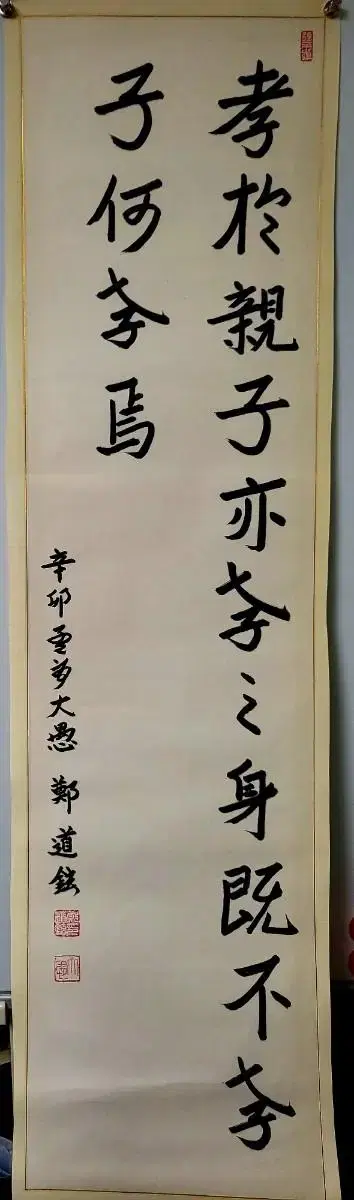 孝於親子亦孝之身既不孝
子何孝焉
辛卯大愚 鄭道